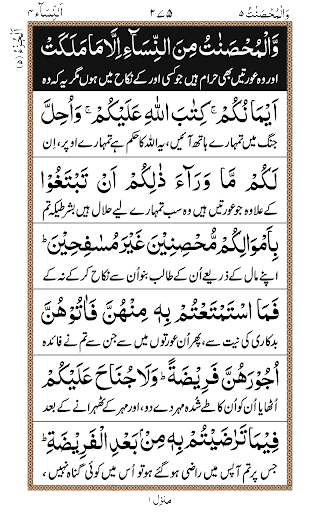 وَالْمُحْصَنٰتُ ۵ ۲۷۵ اَلنِّسَآء ۴
اَلْجُزْءُ (۵)
وَّالْمُحْصَنٰتُ مِنَ النِّسَآءِ اِلَّا مَا مَلَكَتْ
اور وہ عورتیں بھی حرام ہیں جو کسی اور کے نکاح میں ہوں مگر یہ کہ وہ
اَيْمَانُكُمْ ۚ كِتٰبَ اللّٰهِ عَلَيْكُمْ ۚ وَاُحِلَّ
جنگ میں تمہارے ہاتھ آئیں، یہ اللہ کا حکم ہے تمہارے اوپر، اِن
لَكُمْ مَّا وَرَآءَ ذٰلِكُمْ اَنْ تَبْتَغُوْا
کے علاوہ جو عورتیں ہیں وہ سب تمہارے لیے حلال ہیں بشرطیکہ تم
بِاَمْوَالِكُمْ مُّحْصِنِيْنَ غَيْرَ مُسٰفِحِيْنَ ؕ
اپنے مال کے ذریعے اُن کے طالب بنو اُن سے نکاح کر کے نہ کے
فَمَا اسْتَمْتَعْتُمْ بِهٖ مِنْهُنَّ فَاٰتُوْهُنَّ
بدکاری کی نیت سے، پھر اُن عورتوں میں سے جن سے تم نے فائدہ
اُجُوْرَهُنَّ فَرِيْضَةً ؕ وَلَا جُنَاحَ عَلَيْكُمْ
اُٹھایا اُن کو اُن کا طے شدہ مہر دے دو، اور مہر کے ٹھہرانے کے بعد
فِيْمَا تَرٰضَيْتُمْ بِهٖ مِنْۢ بَعْدِ الْفَرِيْضَةِ ؕ
جس پر تم آپس میں راضی ہو گئے ہو تو اُس میں کوئی گناہ نہیں،
منزل ۱